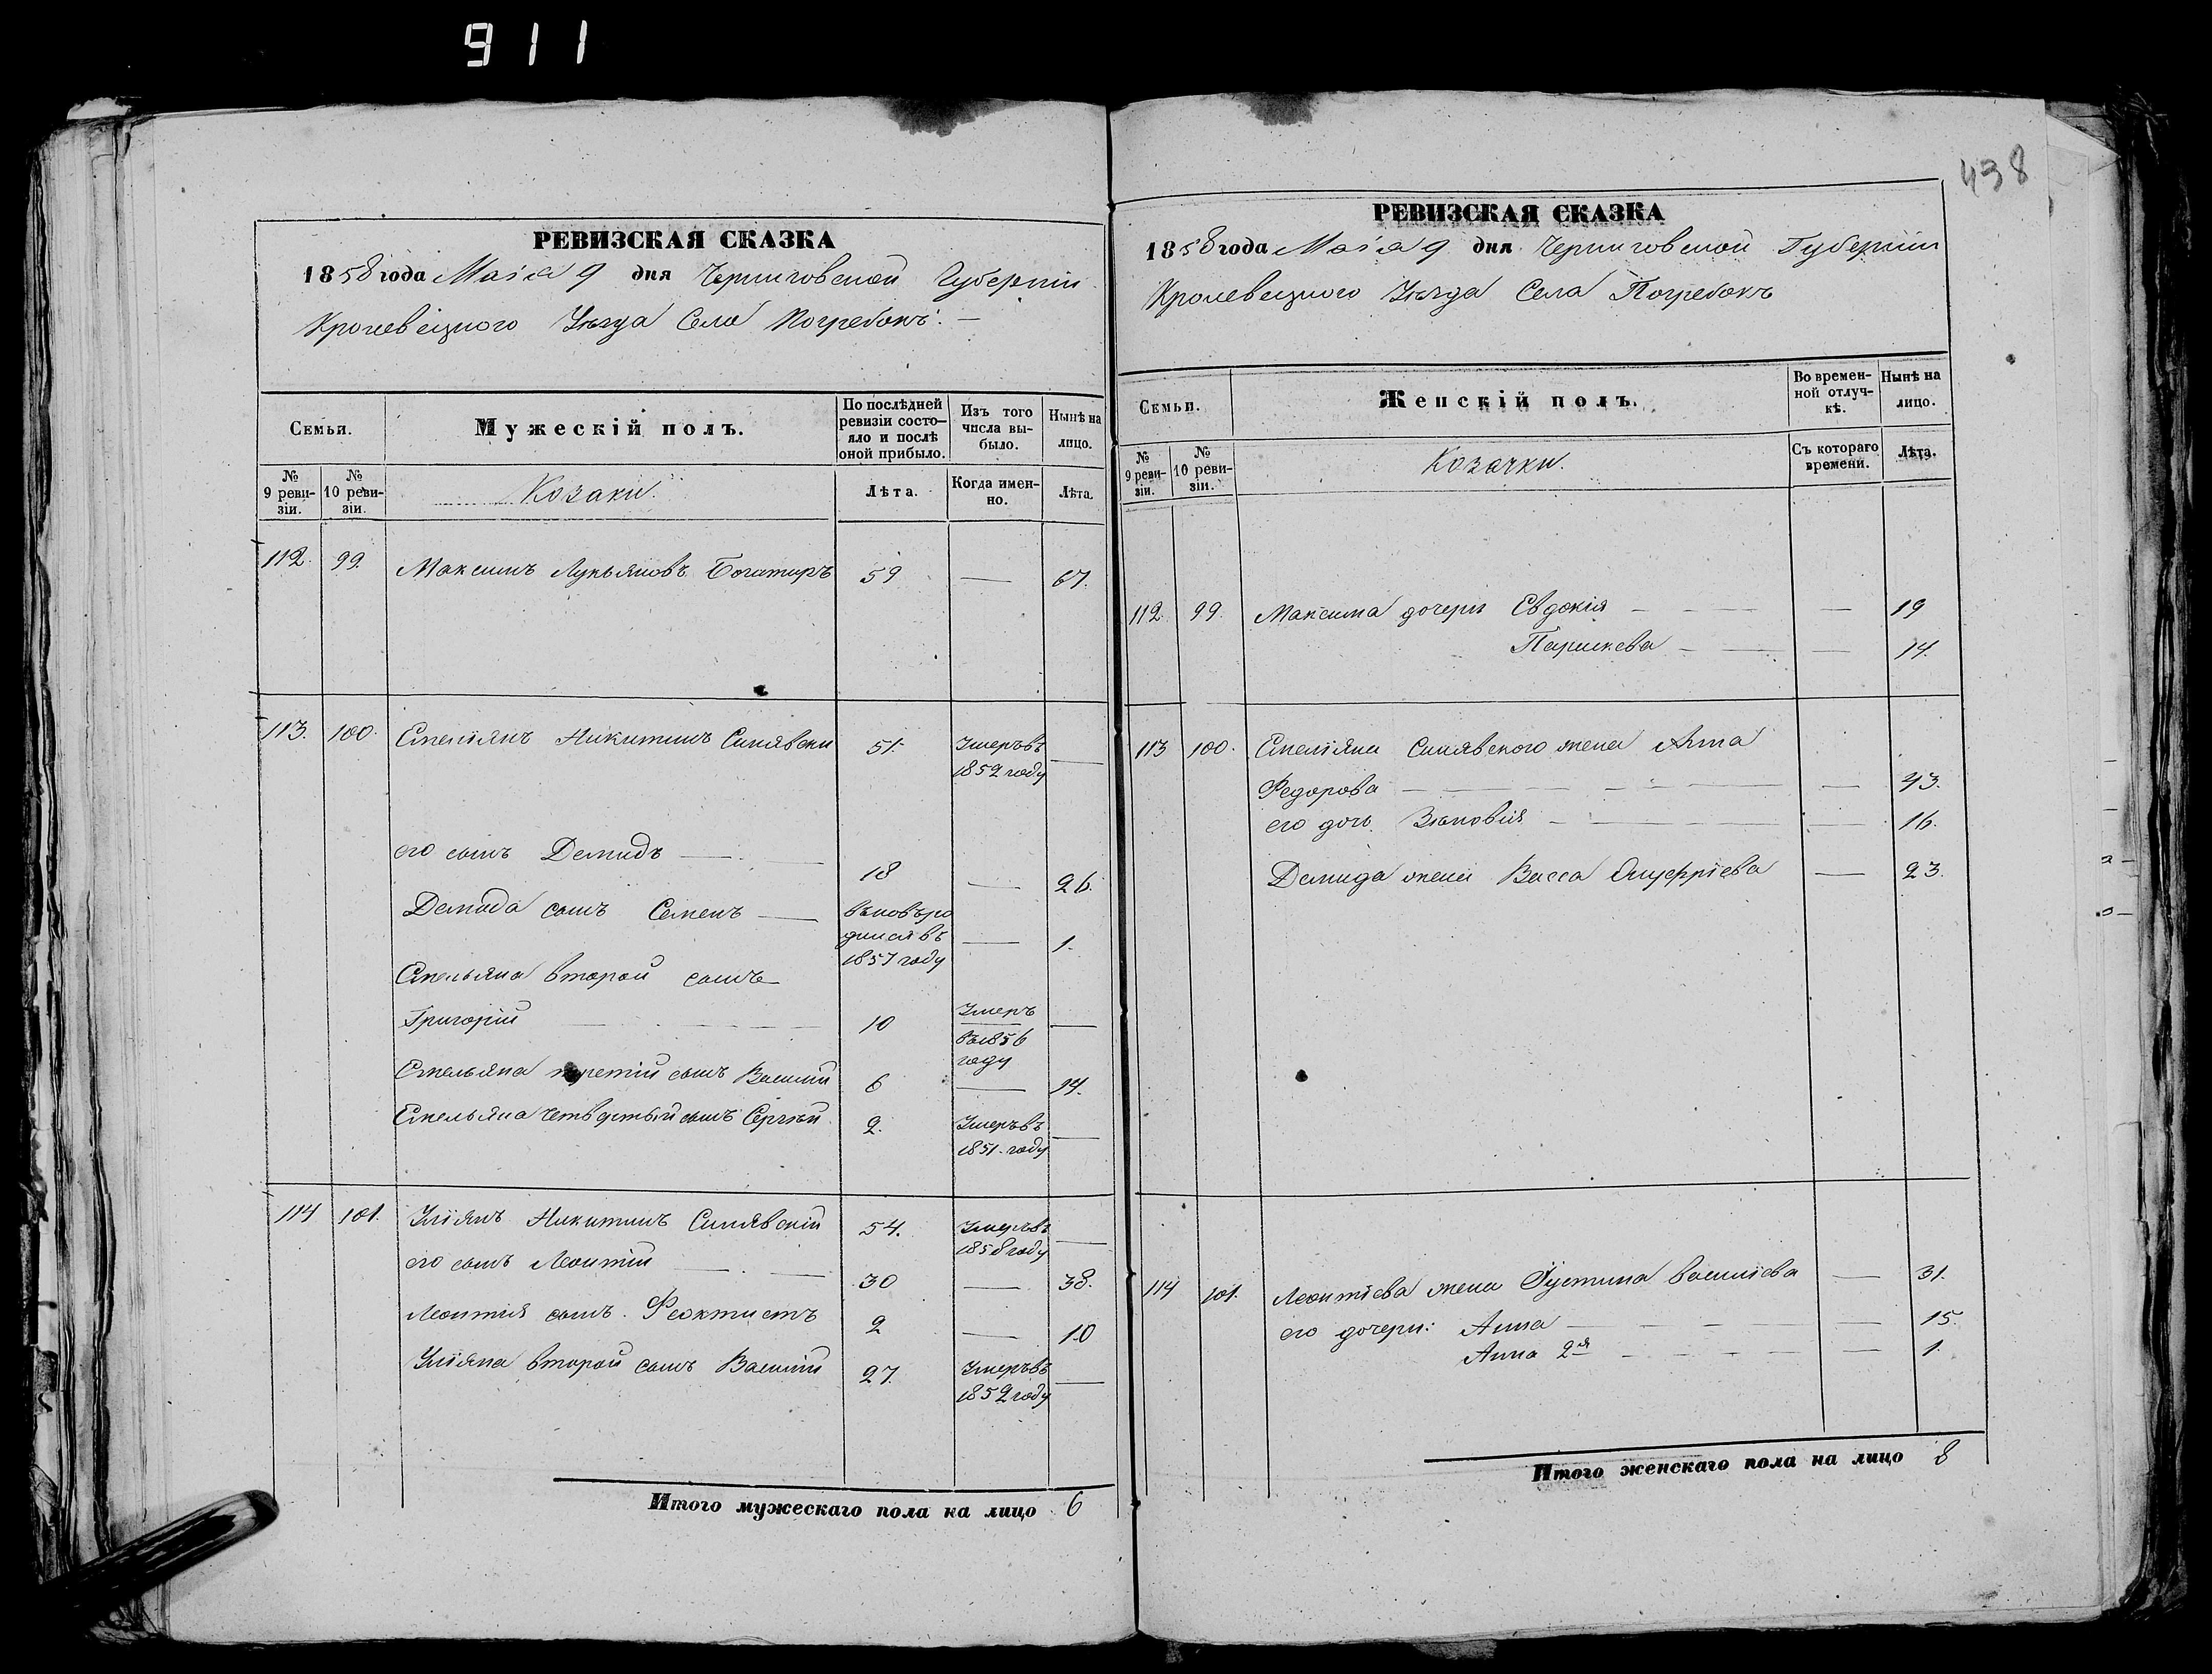 911
438
РЕВИЗСКАЯ СКАЗКА
1858 года Маія 9 дня Черниговской Губерніи
Кролевецкого Уѣзда Села Погребокъ. —
Семьи.
Мужескій полъ.
По послѣдней ревизіи состояло и послѣ оной прибыло.
Изъ того числа выбыло.
Нынѣ на лицо.
№ 9 ревизіи.
№ 10 ревизіи.
Козаки.
Лѣта.
Когда именно.
Лѣта.
112. 99. Максимъ Лукьяновъ Богатиръ 59 — 67.
113. 100. Емеліянъ Никитинъ Синявски 51. Умеръ въ
1852 году —
его сынъ Демидъ — 18 — 26.
Демида сынъ Семенъ — вновь ро
дился въ — 1.
1857 году
Емельяна второй сынъ
Григорій 10 Умеръ —
въ 1856
году
Емельяна третій сынъ Василій 6 — 14.
Емельяна четвертый сынъ Сергѣй 2. Умеръ въ —
1851. году
114 101. Уліянъ Никитинъ Синявскій 54. Умеръ въ
1858 году —
его сынъ Леонтій — 30 — 38.
Леонтія сынъ Феоктистъ 2 — 10
Уліяна второй сынъ Василій 27. Умеръ въ
1852 году —
Итого мужескаго пола на лицо 6
РЕВИЗСКАЯ СКАЗКА
1858 года Маія 9 дня Черниговской Губерніи
Кролевецкого Уѣзда Села Погребокъ
Семьи.
Женскій полъ.
Во временной отлучкѣ.
Нынѣ на лицо.
№ 9 ревизіи.
№ 10 ревизіи.
Козачки.
Съ котораго времени.
Лѣта.
112. 99. Максима дочери Евдокія — — 19
Параскева — — 14.
113 100. Емеліяна Синявского жена Анна
Федорова — — 43.
его дочь Зѣновія — — 16.
Демида жена Васса Онуфріева — 23.
114 101. Леонтіева жена Іустина Василіева — 31.
его дочери: Анна — — 15.
Анна 2я — — 1.
Итого женскаго пола на лицо 8